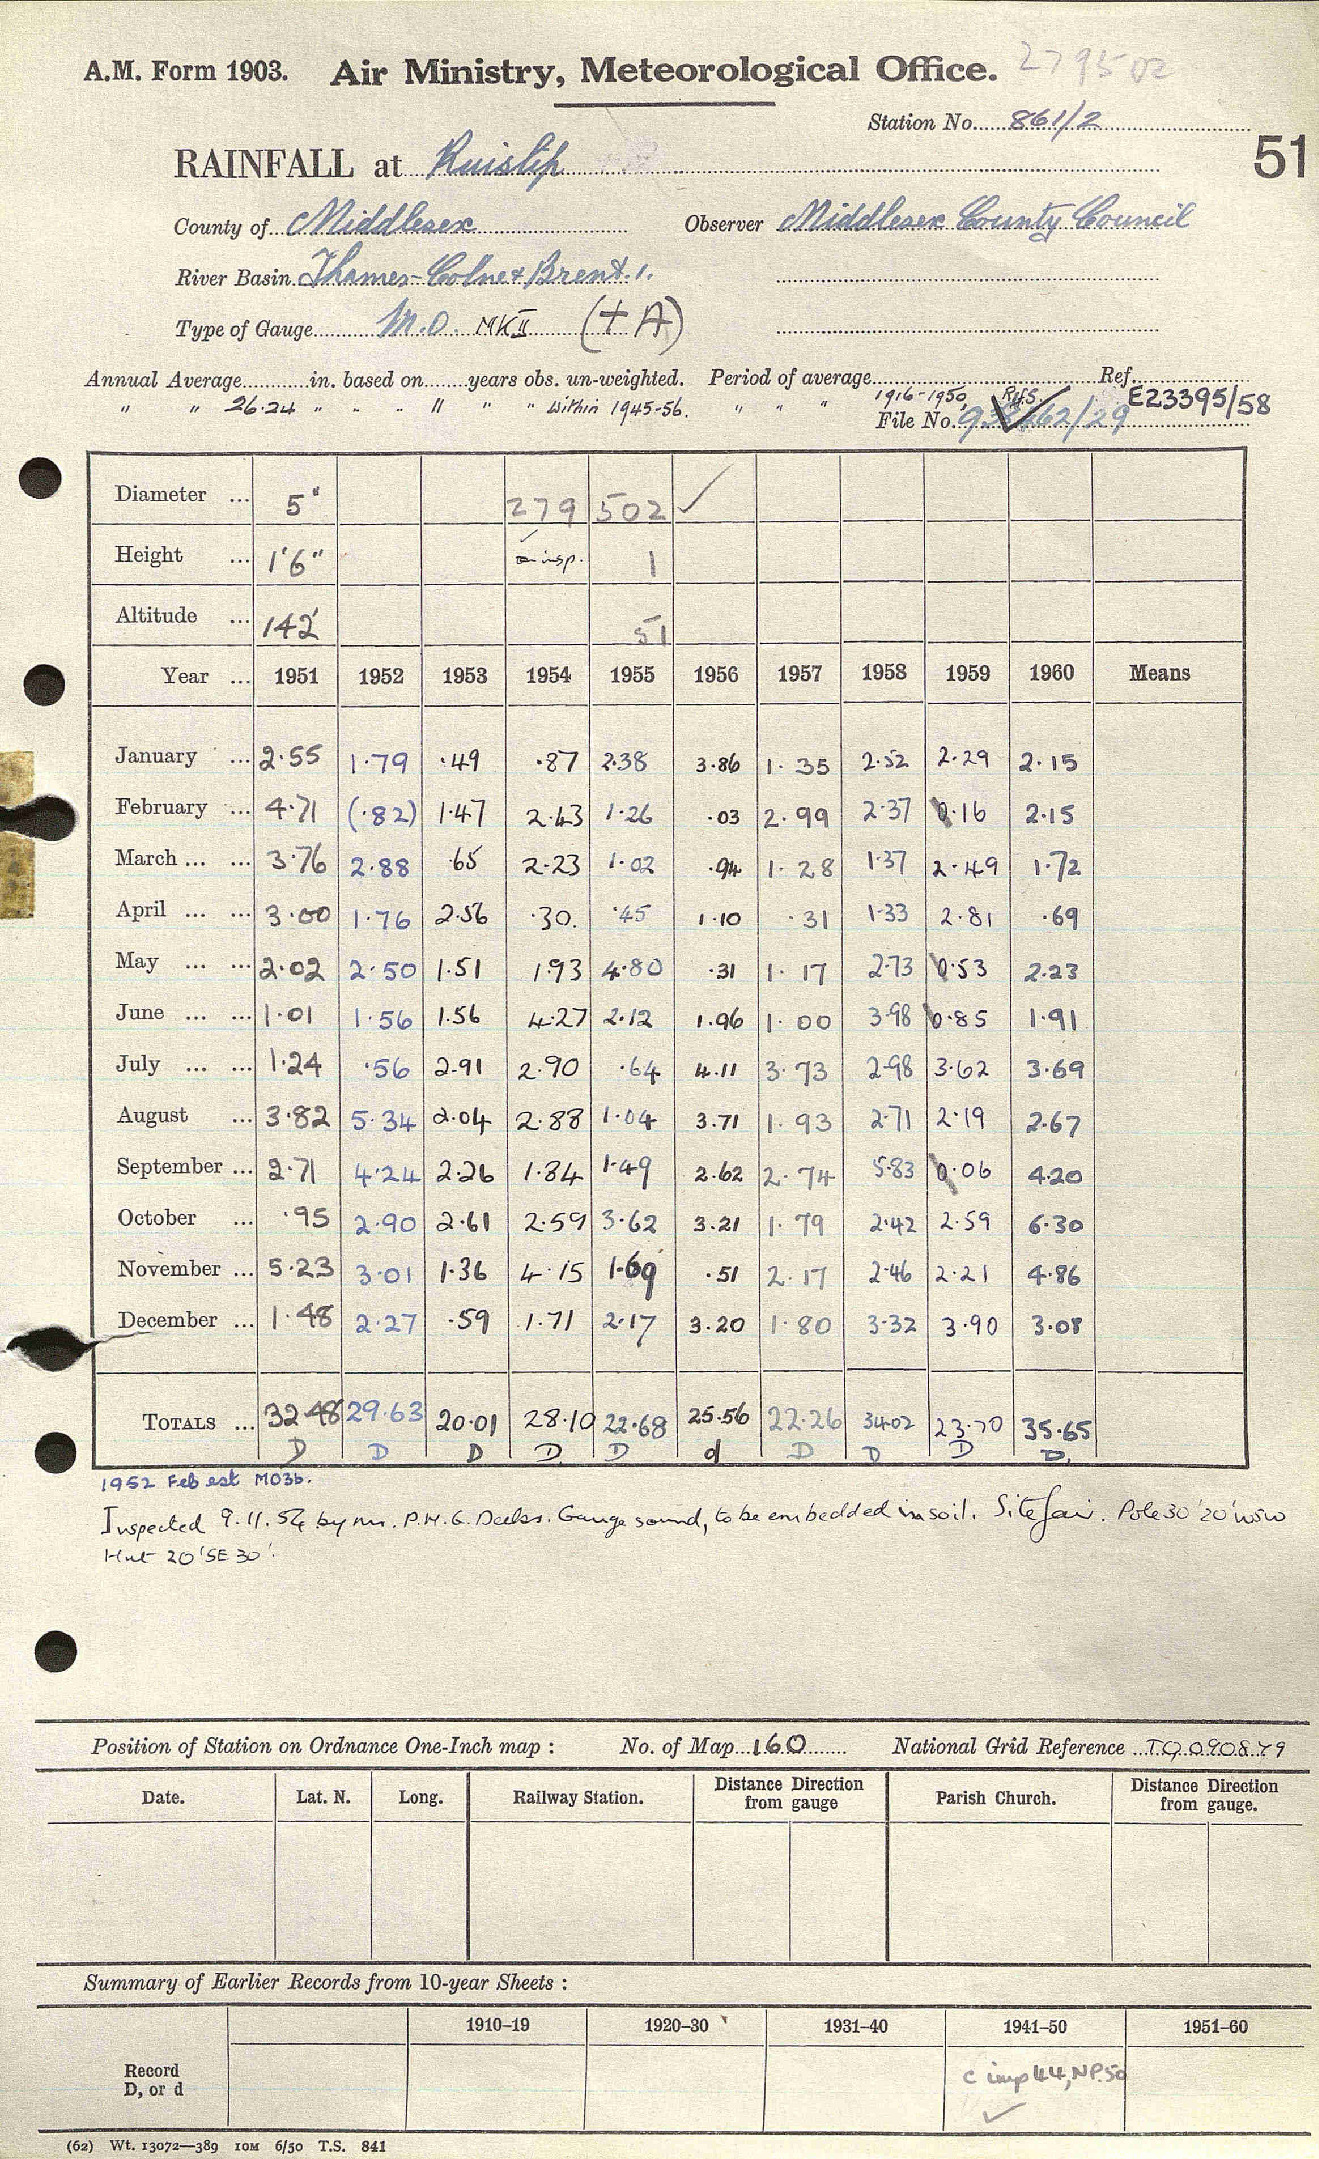 A.M. Form 1903. Air Ministry, Meteorological Office. 279502
Station No. 861/2
51
RAINFALL at Ruislip
County of Middlesex Observer Middlesex County Council
River Basin Thames-Colne & Brent. 1.
Type of Gauge M.O. MK II (+A)
Annual Average in. based on years obs. un-weighted. Period of average Ref.
" " 26.24 " " " 11 " " Within 1945-56. " " " 1916-1950, E23395/58
File No. 62/29
Diameter ... 5" 279 502 ✓
Height ... 1'6" insp. 1
Altitude ... 142' 51
Year ... 1951 1952 1953 1954 1955 1956 1957 1958 1959 1960 Means
January ... 2.55 1.79 .49 .87 2.38 3.86 1.35 2.52 2.29 2.15
February ... 4.71 (.82) 1.47 2.43 1.26 .03 2.99 2.37 0.16 2.15
March ... ... 3.76 2.88 .65 2.23 1.02 .94 1.28 1.37 2.49 1.72
April ... ... 3.00 1.76 2.56 .30. .45 1.10 .31 1.33 2.81 .69
May ... ... 2.02 2.50 1.51 1.93 4.80 .31 1.17 2.73 0.53 2.23
June ... ... 1.01 1.56 1.56 4.27 2.12 1.96 1.00 3.98 0.85 1.91
July ... ... 1.24 .56 2.91 2.90 .64 4.11 3.73 2.98 3.62 3.69
August ... 3.82 5.34 2.04 2.88 1.04 3.71 1.93 2.71 2.19 2.67
September ... 2.71 4.24 2.26 1.84 1.49 2.62 2.74 5.83 0.06 4.20
October ... .95 2.90 2.61 2.59 3.62 3.21 1.79 2.42 2.59 6.30
November ... 5.23 3.01 1.36 4.15 1.69 .51 2.17 2.46 2.21 4.86
December ... 1.48 2.27 .59 1.71 2.17 3.20 1.80 3.32 3.90 3.08
TOTALS ... 32.48 29.63 20.01 28.10 22.68 25.56 22.26 34.02 23.70 35.65
D D D D D d D D D D.
1952 Feb est MO3b.
Inspected 9.11.54 by Mr. P.H.G. Deeks. Gauge sound, to be embedded in soil. Site fair. Pole 30' 20' WSW
Hut 20' SE 30'.
Position of Station on Ordnance One-Inch map : No. of Map 160 National Grid Reference TQ 090879
Date. Lat. N. Long. Railway Station. Distance Direction from gauge Parish Church. Distance Direction from gauge.
Summary of Earlier Records from 10-year Sheets :
1910–19 1920–30 1931–40 1941–50 1951–60
Record D, or d c imp 44, NP.50
✓
(62) Wt. 13072—389 10M 6/50 T.S. 841